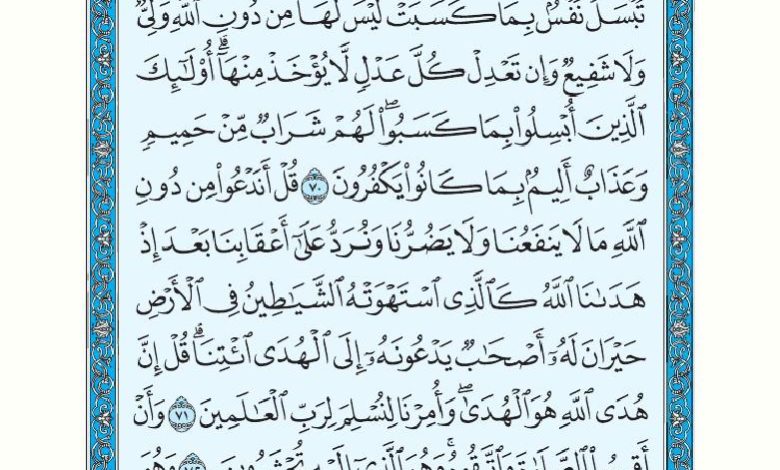 تُبْسَلَ نَفْسٌۢ بِمَا كَسَبَتْ لَيْسَ لَهَا مِن دُونِ ٱللَّهِ وَلِىٌّ
وَلَا شَفِيعٌ وَإِن تَعْدِلْ كُلَّ عَدْلٍ لَّا يُؤْخَذْ مِنْهَآ ۗ أُو۟لَـٰٓئِكَ
ٱلَّذِينَ أُبْسِلُوا۟ بِمَا كَسَبُوا۟ ۖ لَهُمْ شَرَابٌ مِّنْ حَمِيمٍ
وَعَذَابٌ أَلِيمٌۢ بِمَا كَانُوا۟ يَكْفُرُونَ ٧٠ قُلْ أَنَدْعُوا۟ مِن دُونِ
ٱللَّهِ مَا لَا يَنفَعُنَا وَلَا يَضُرُّنَا وَنُرَدُّ عَلَىٰٓ أَعْقَابِنَا بَعْدَ إِذْ
هَدَىٰنَا ٱللَّهُ كَٱلَّذِى ٱسْتَهْوَتْهُ ٱلشَّيَـٰطِينُ فِى ٱلْأَرْضِ
حَيْرَانَ لَهُۥٓ أَصْحَـٰبٌ يَدْعُونَهُۥٓ إِلَى ٱلْهُدَى ٱئْتِنَا ۗ قُلْ إِنَّ
هُدَى ٱللَّهِ هُوَ ٱلْهُدَىٰ ۖ وَأُمِرْنَا لِنُسْلِمَ لِرَبِّ ٱلْعَـٰلَمِينَ ٧١ وَأَنْ
أَقِيمُوا۟ ٱلصَّلَوٰةَ وَٱتَّقُوهُ ۚ وَهُوَ ٱلَّذِىٓ إِلَيْهِ تُحْشَرُونَ ٧٢ وَهُوَ